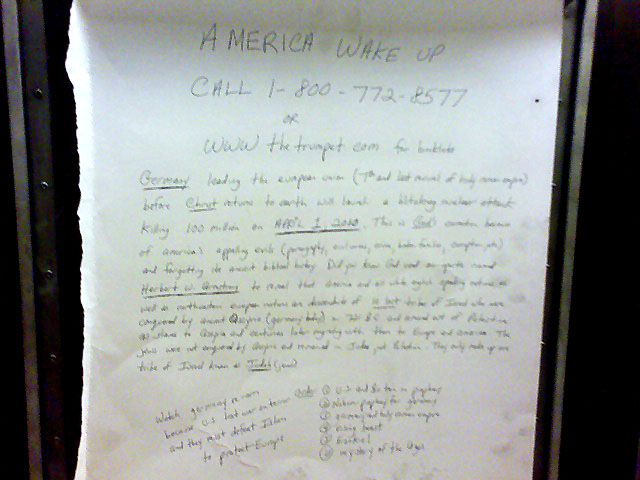 AMERICA WAKE UP
CALL 1-800-772-8577
OR
WWW thetrumpet.com for booklets
Germany leading the european union (7th and last revival of holy roman empire)
before Christ returns to earth will launch a blitzkrieg nuclear attack
killing 100 million on APRIL 1, 2010. This is God's correction because
of america's appalling evils (pornography,
and forgetting its ancient biblical history. Did you know God used an named
Herbert W. Armstrong to reveal that America and all white english speaking nations as
well as northwestern european nations are descendants of 10 lost tribes of Israel who were
conquered by ancient Assyria (germany today) in B.C. and moved out of Palestine
as slaves to Assyria and centuries later migrating with them to Europe and america. The
jews were not conquered by Assyria and remained in Judea Palestine. They only make up one
tribe of Israel known as Judah (jews)
Watch germany
because U.S. lost war on terror
and they must defeat Islam
to protect Europe
① U.S. and Britain in prophecy
② prophecy for germany
③ germany and holy roman empire
④ rising beast
⑤ Ezekiel
⑥ mystery of the Ages